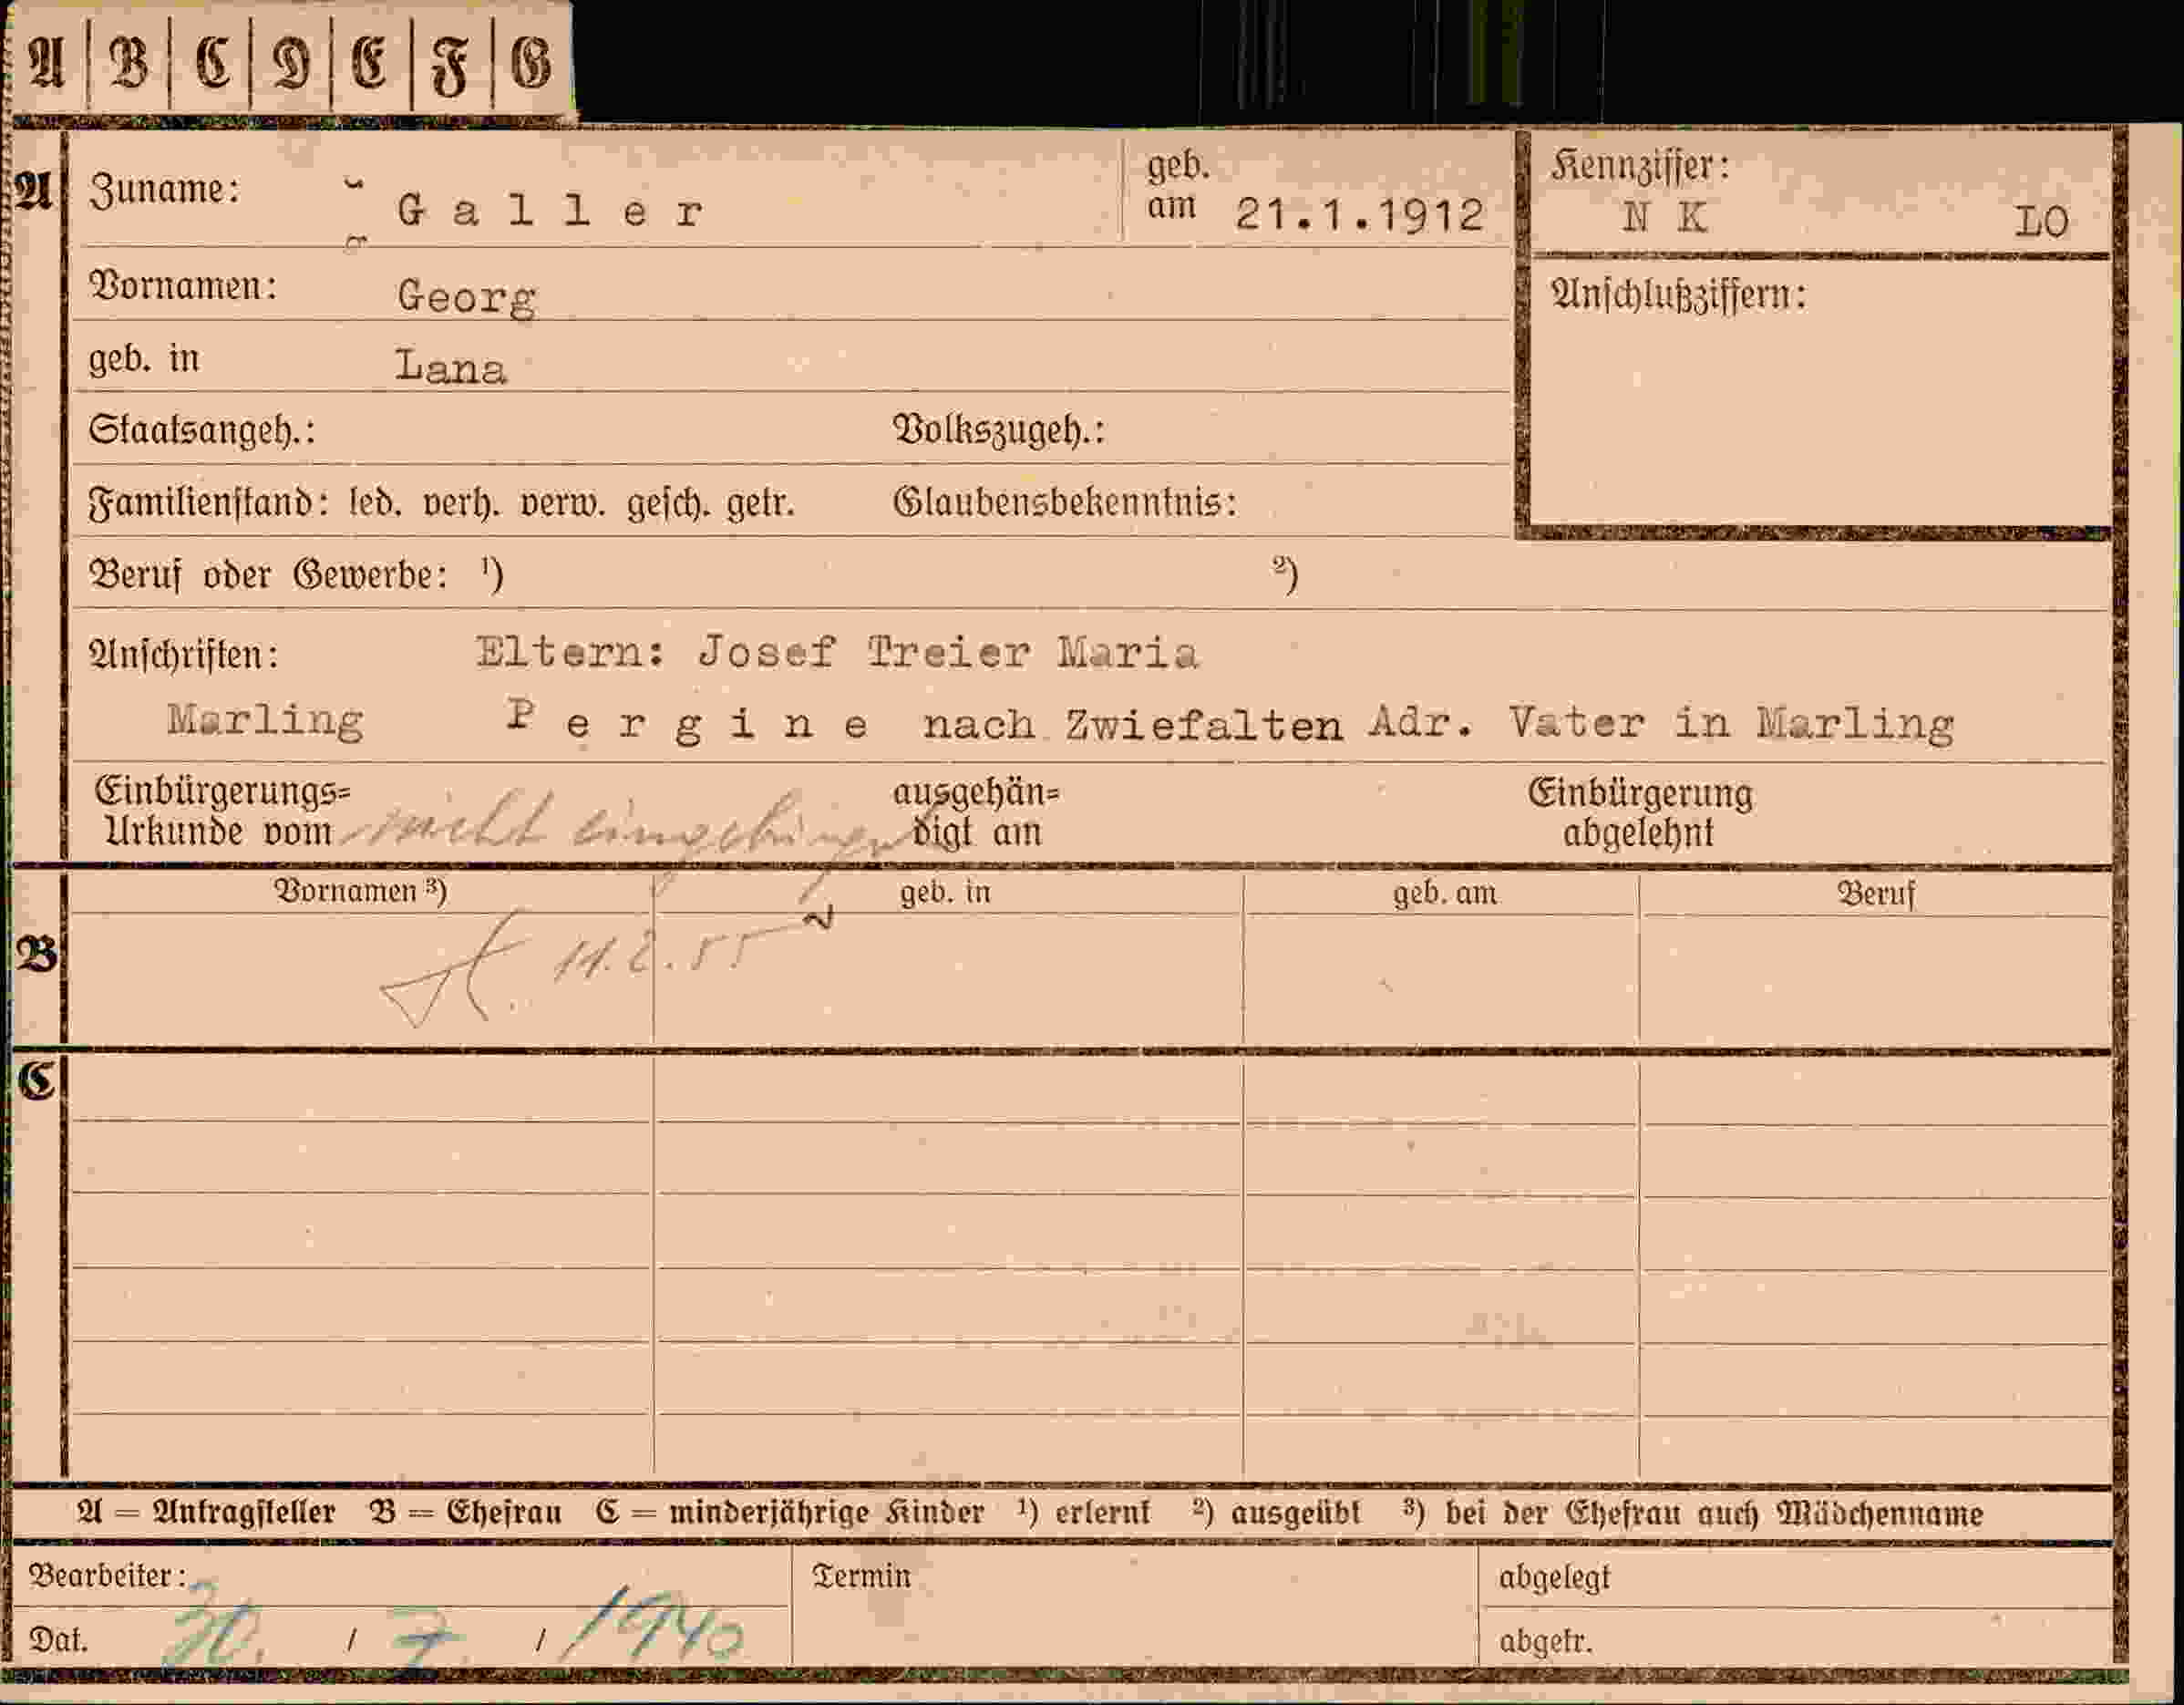 A | B | C | D | E | F | G
A Zuname: G a l l e r geb. am 21.1.1912
Kennziffer: N K LO
Vornamen: Georg
Anschlußziffern:
geb. in Lana
Staatsangeh.: Volkszugeh.:
Familienstand: led. verh. verw. gesch. getr. Glaubensbekenntnis:
Beruf oder Gewerbe: ¹) ²)
Anschriften: Eltern: Josef Treier Maria
Marling P e r g i n e nach Zwiefalten Adr. Vater in Marling
Einbürgerungs= ausgehän= Einbürgerung
Urkunde vom nicht digt am abgelehnt
Vornamen ³) geb. in geb. am Beruf
B 11.2.55
C
A = Antragsteller B = Ehefrau C = minderjährige Kinder ¹) erlernt ²) ausgeübt ³) bei der Ehefrau auch Mädchenname
Bearbeiter: Termin abgelegt
Dat. 30. / 7. / 1940 abgetr.